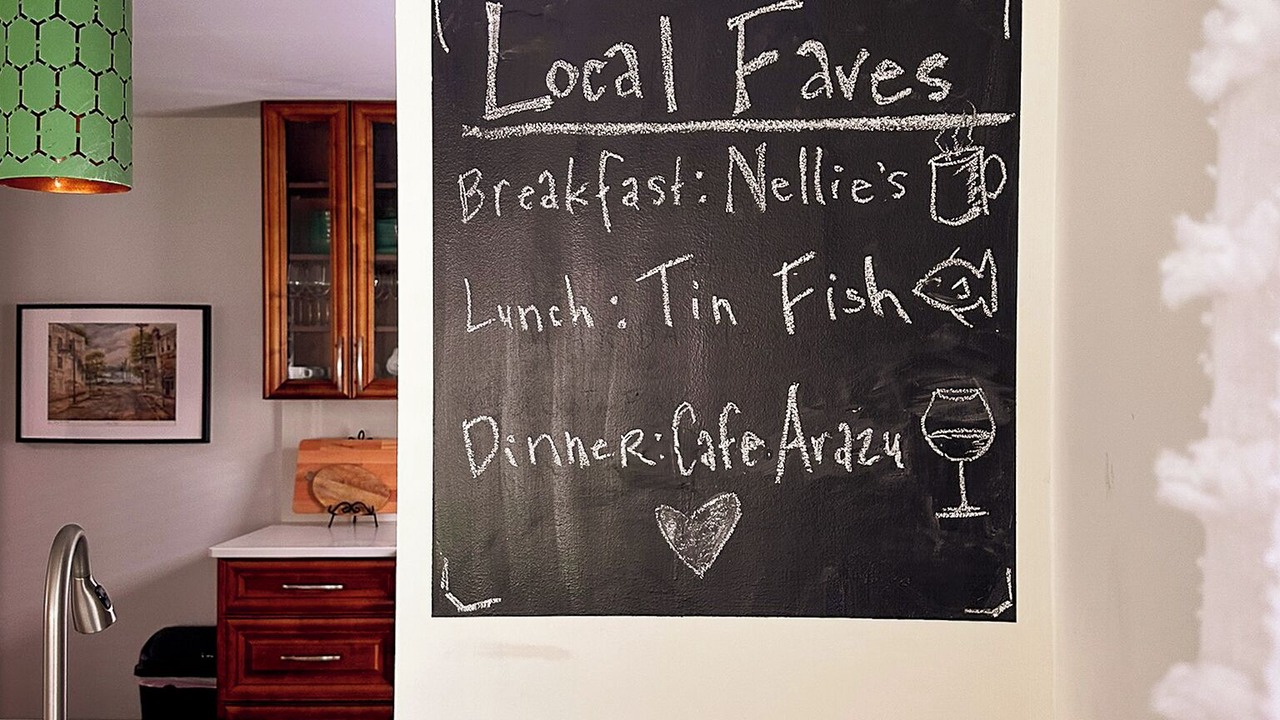 Local Faves
Breakfast: Nellie's
Lunch: Tin Fish
Dinner: Cafe Arazu